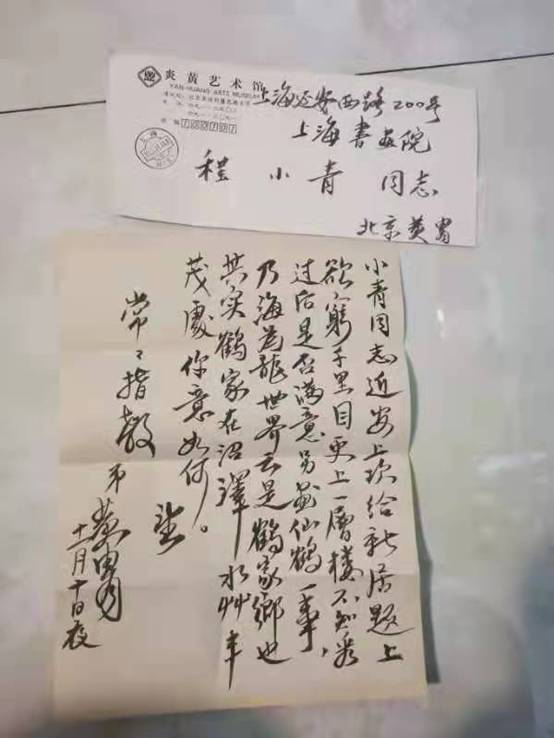 炎黄艺术馆
YAN-HUANG ARTS MUSEUM
上海延安西路200号
上海书画院
程小青同志
北京黄胄
小青同志近安上次给新居题上
欲穷千里目更上一层楼不知看
过后是否满意另画仙鹤一事,
乃海为龙世界云是鹤家乡也
其实鹤家在沼泽水草丰
茂处你意如何。望
常々指教 弟黄胄
十一月十日夜